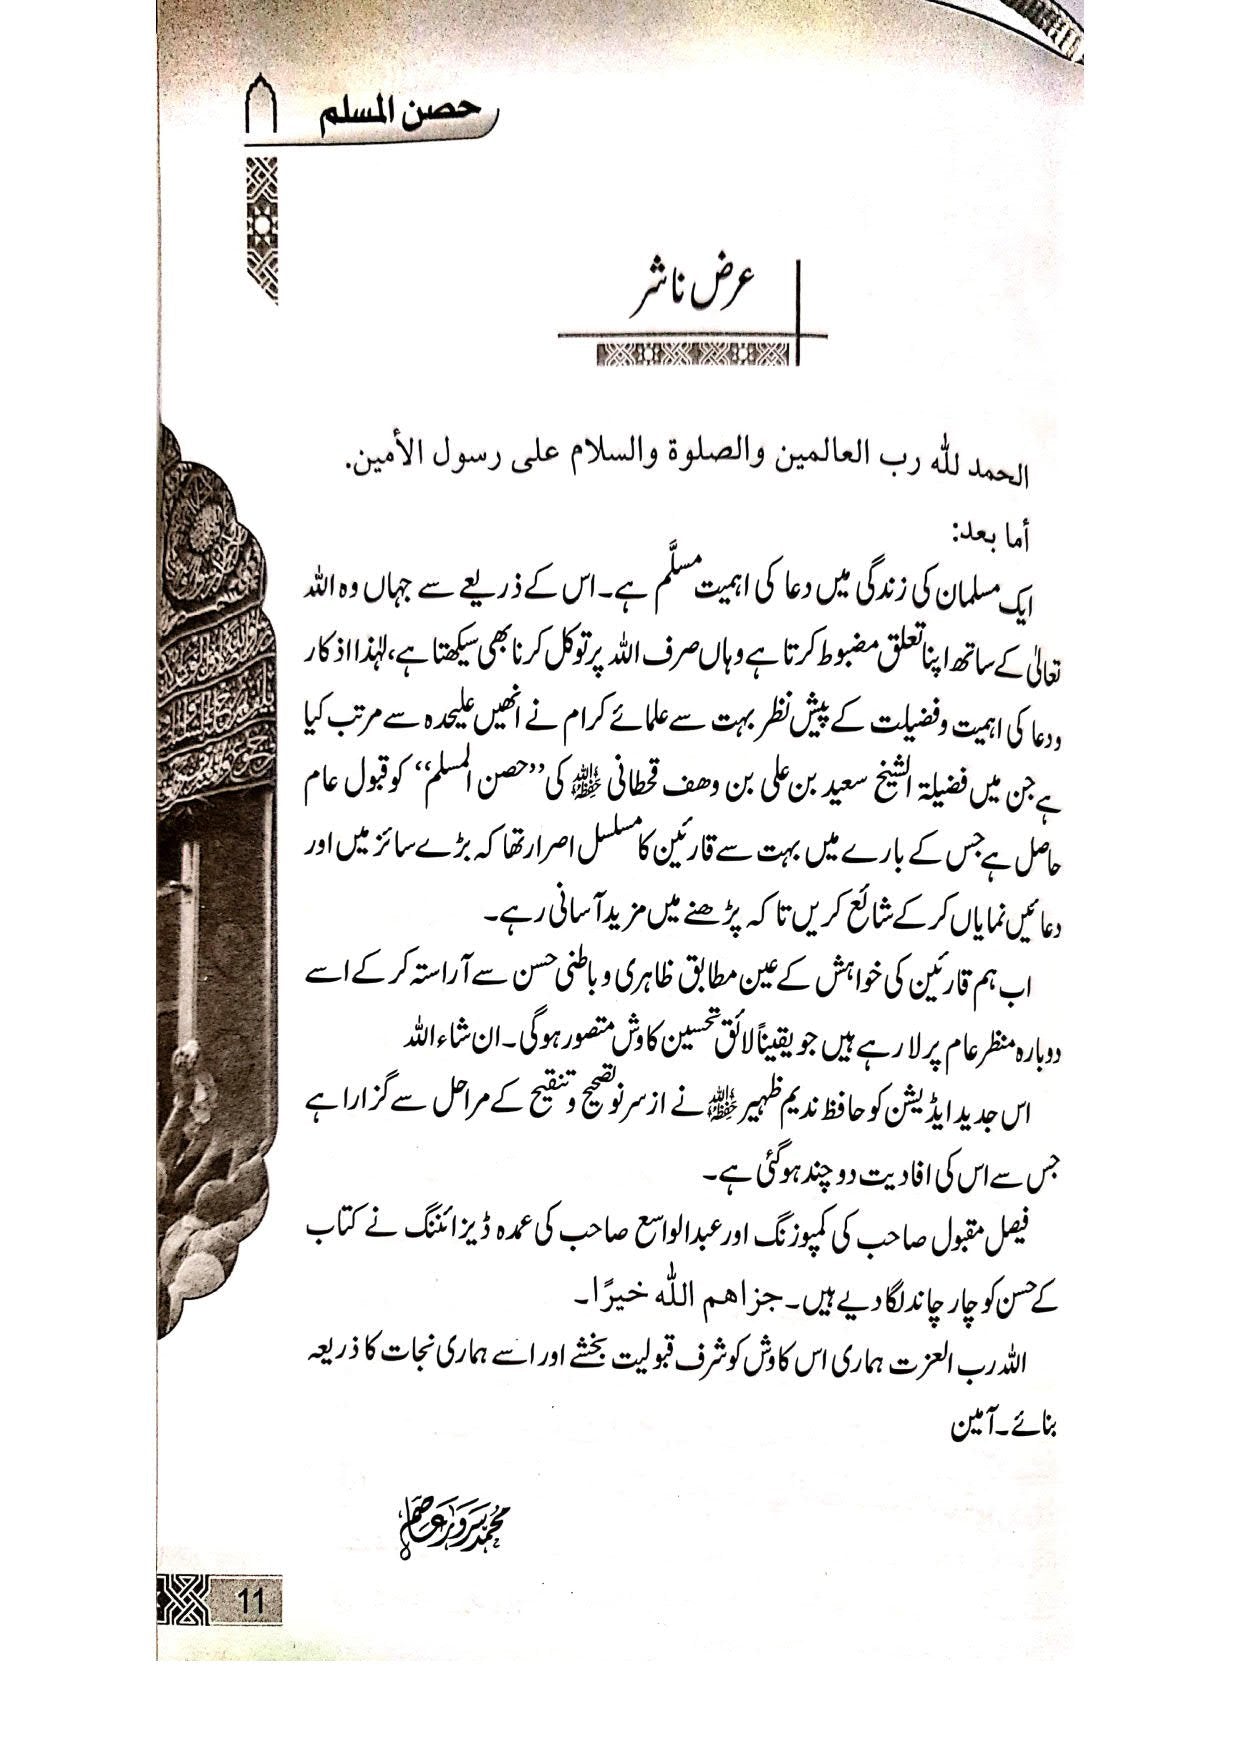 حصن المسلم
عرض ناشر
الحمد لله رب العالمين والصلوة والسلام على رسول الأمين.
أما بعد:
ایک مسلمان کی زندگی میں دعا کی اہمیت مسلَّم ہے۔ اس کے ذریعے سے جہاں وہ اللہ
تعالیٰ کے ساتھ اپنا تعلق مضبوط کرتا ہے وہاں صرف اللہ پر توکل کرنا بھی سیکھتا ہے، لہٰذا اذکار
ودعا کی اہمیت وفضیلت کے پیش نظر بہت سے علمائے کرام نے انھیں علیحدہ سے مرتب کیا
ہے جن میں فضیلۃ الشیخ سعید بن علی بن وھف قحطانی حفظہ اللہ کی ”حصن المسلم“ کو قبول عام
حاصل ہے جس کے بارے میں بہت سے قارئین کا مسلسل اصرار تھا کہ بڑے سائز میں اور
دعائیں نمایاں کر کے شائع کریں تا کہ پڑھنے میں مزید آسانی رہے۔
اب ہم قارئین کی خواہش کے عین مطابق ظاہری و باطنی حسن سے آراستہ کر کے اسے
دوبارہ منظر عام پر لا رہے ہیں جو یقیناً لائق تحسین کاوش متصور ہوگی۔ ان شاء اللہ
اس جدید ایڈیشن کو حافظ ندیم ظہیر حفظہ اللہ نے از سر نو تصحیح و تنقیح کے مراحل سے گزارا ہے
جس سے اس کی افادیت دو چند ہوگئی ہے۔
فیصل مقبول صاحب کی کمپوزنگ اور عبدالواسع صاحب کی عمدہ ڈیزائننگ نے کتاب
کے حسن کو چار چاند لگا دیے ہیں۔ جزاهم الله خيرًا۔
اللہ رب العزت ہماری اس کاوش کو شرف قبولیت بخشے اور اسے ہماری نجات کا ذریعہ
بنائے۔ آمین
محمد سرور عاصم
11